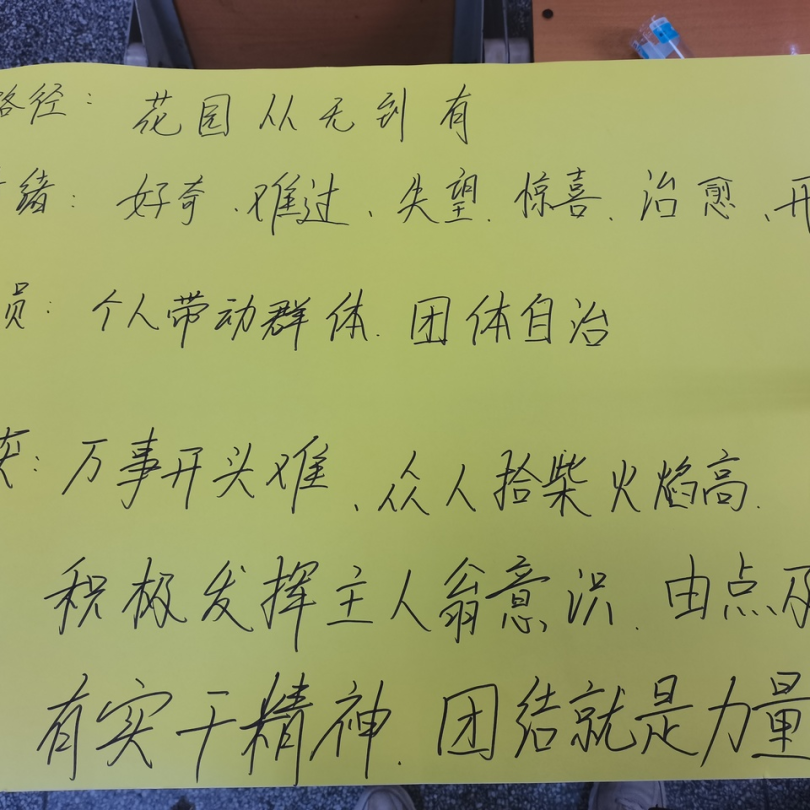 路径：花园从无到有
绪：好奇、难过、失望、惊喜、治愈、开
员：个人带动群体、团体自治
获：万事开头难、众人拾柴火焰高、
积极发挥主人翁意识、由点及
有实干精神、团结就是力量